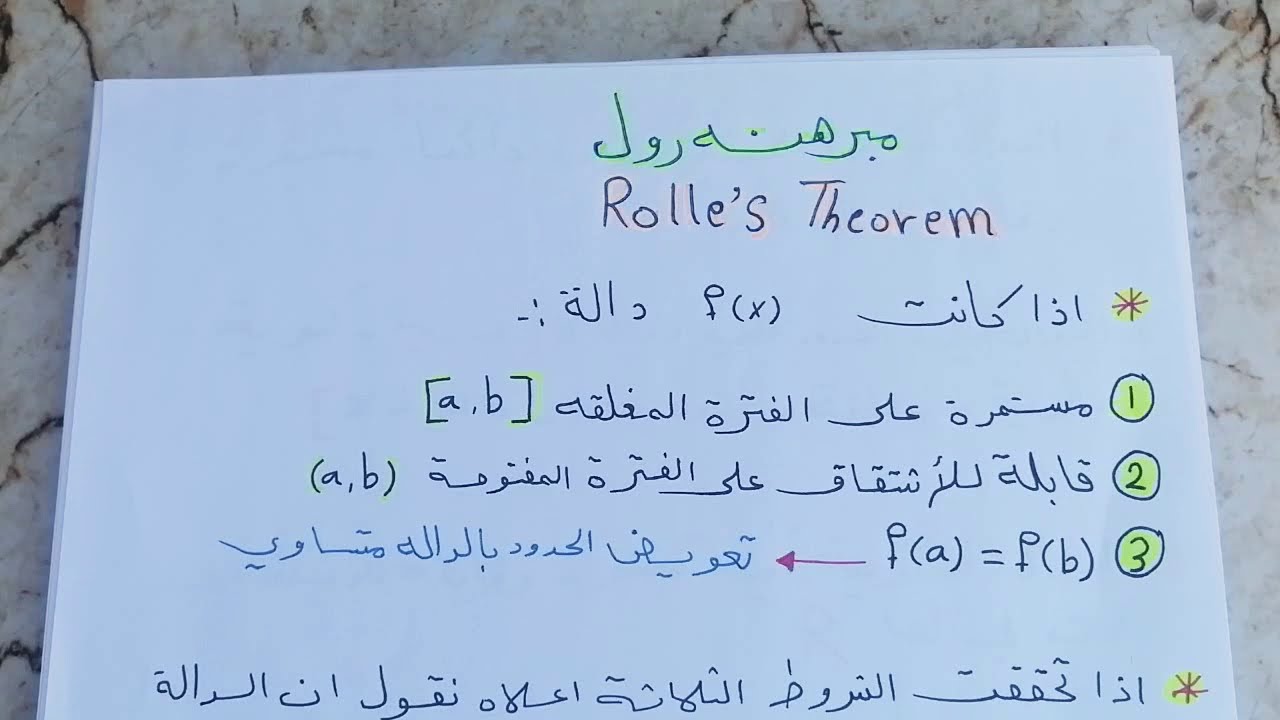 مبرهنه رول
Rolle's Theorem
* اذا كانت f(x) دالة :-
① مستمرة على الفترة المغلقه [a,b]
② قابلة للأشتقاق على الفترة المفتوحة (a,b)
③ f(a) = f(b) ← تعويض الحدود بالداله متساوي
* اذا تحققت الشروط الثلاثة اعلاه نقول ان الدالة